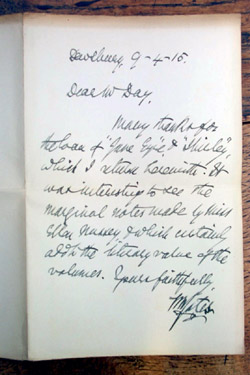 Dewsbury. 9-4-15.
Dear Mr Day,
Many thanks for
the loan of "Jane Eyre" & "Shirley",
which I return herewith. It
was interesting to see the
marginal notes made by Miss
Ellen Nussey, & which certainly
add to the literary value of the
volumes. Yours faithfully,